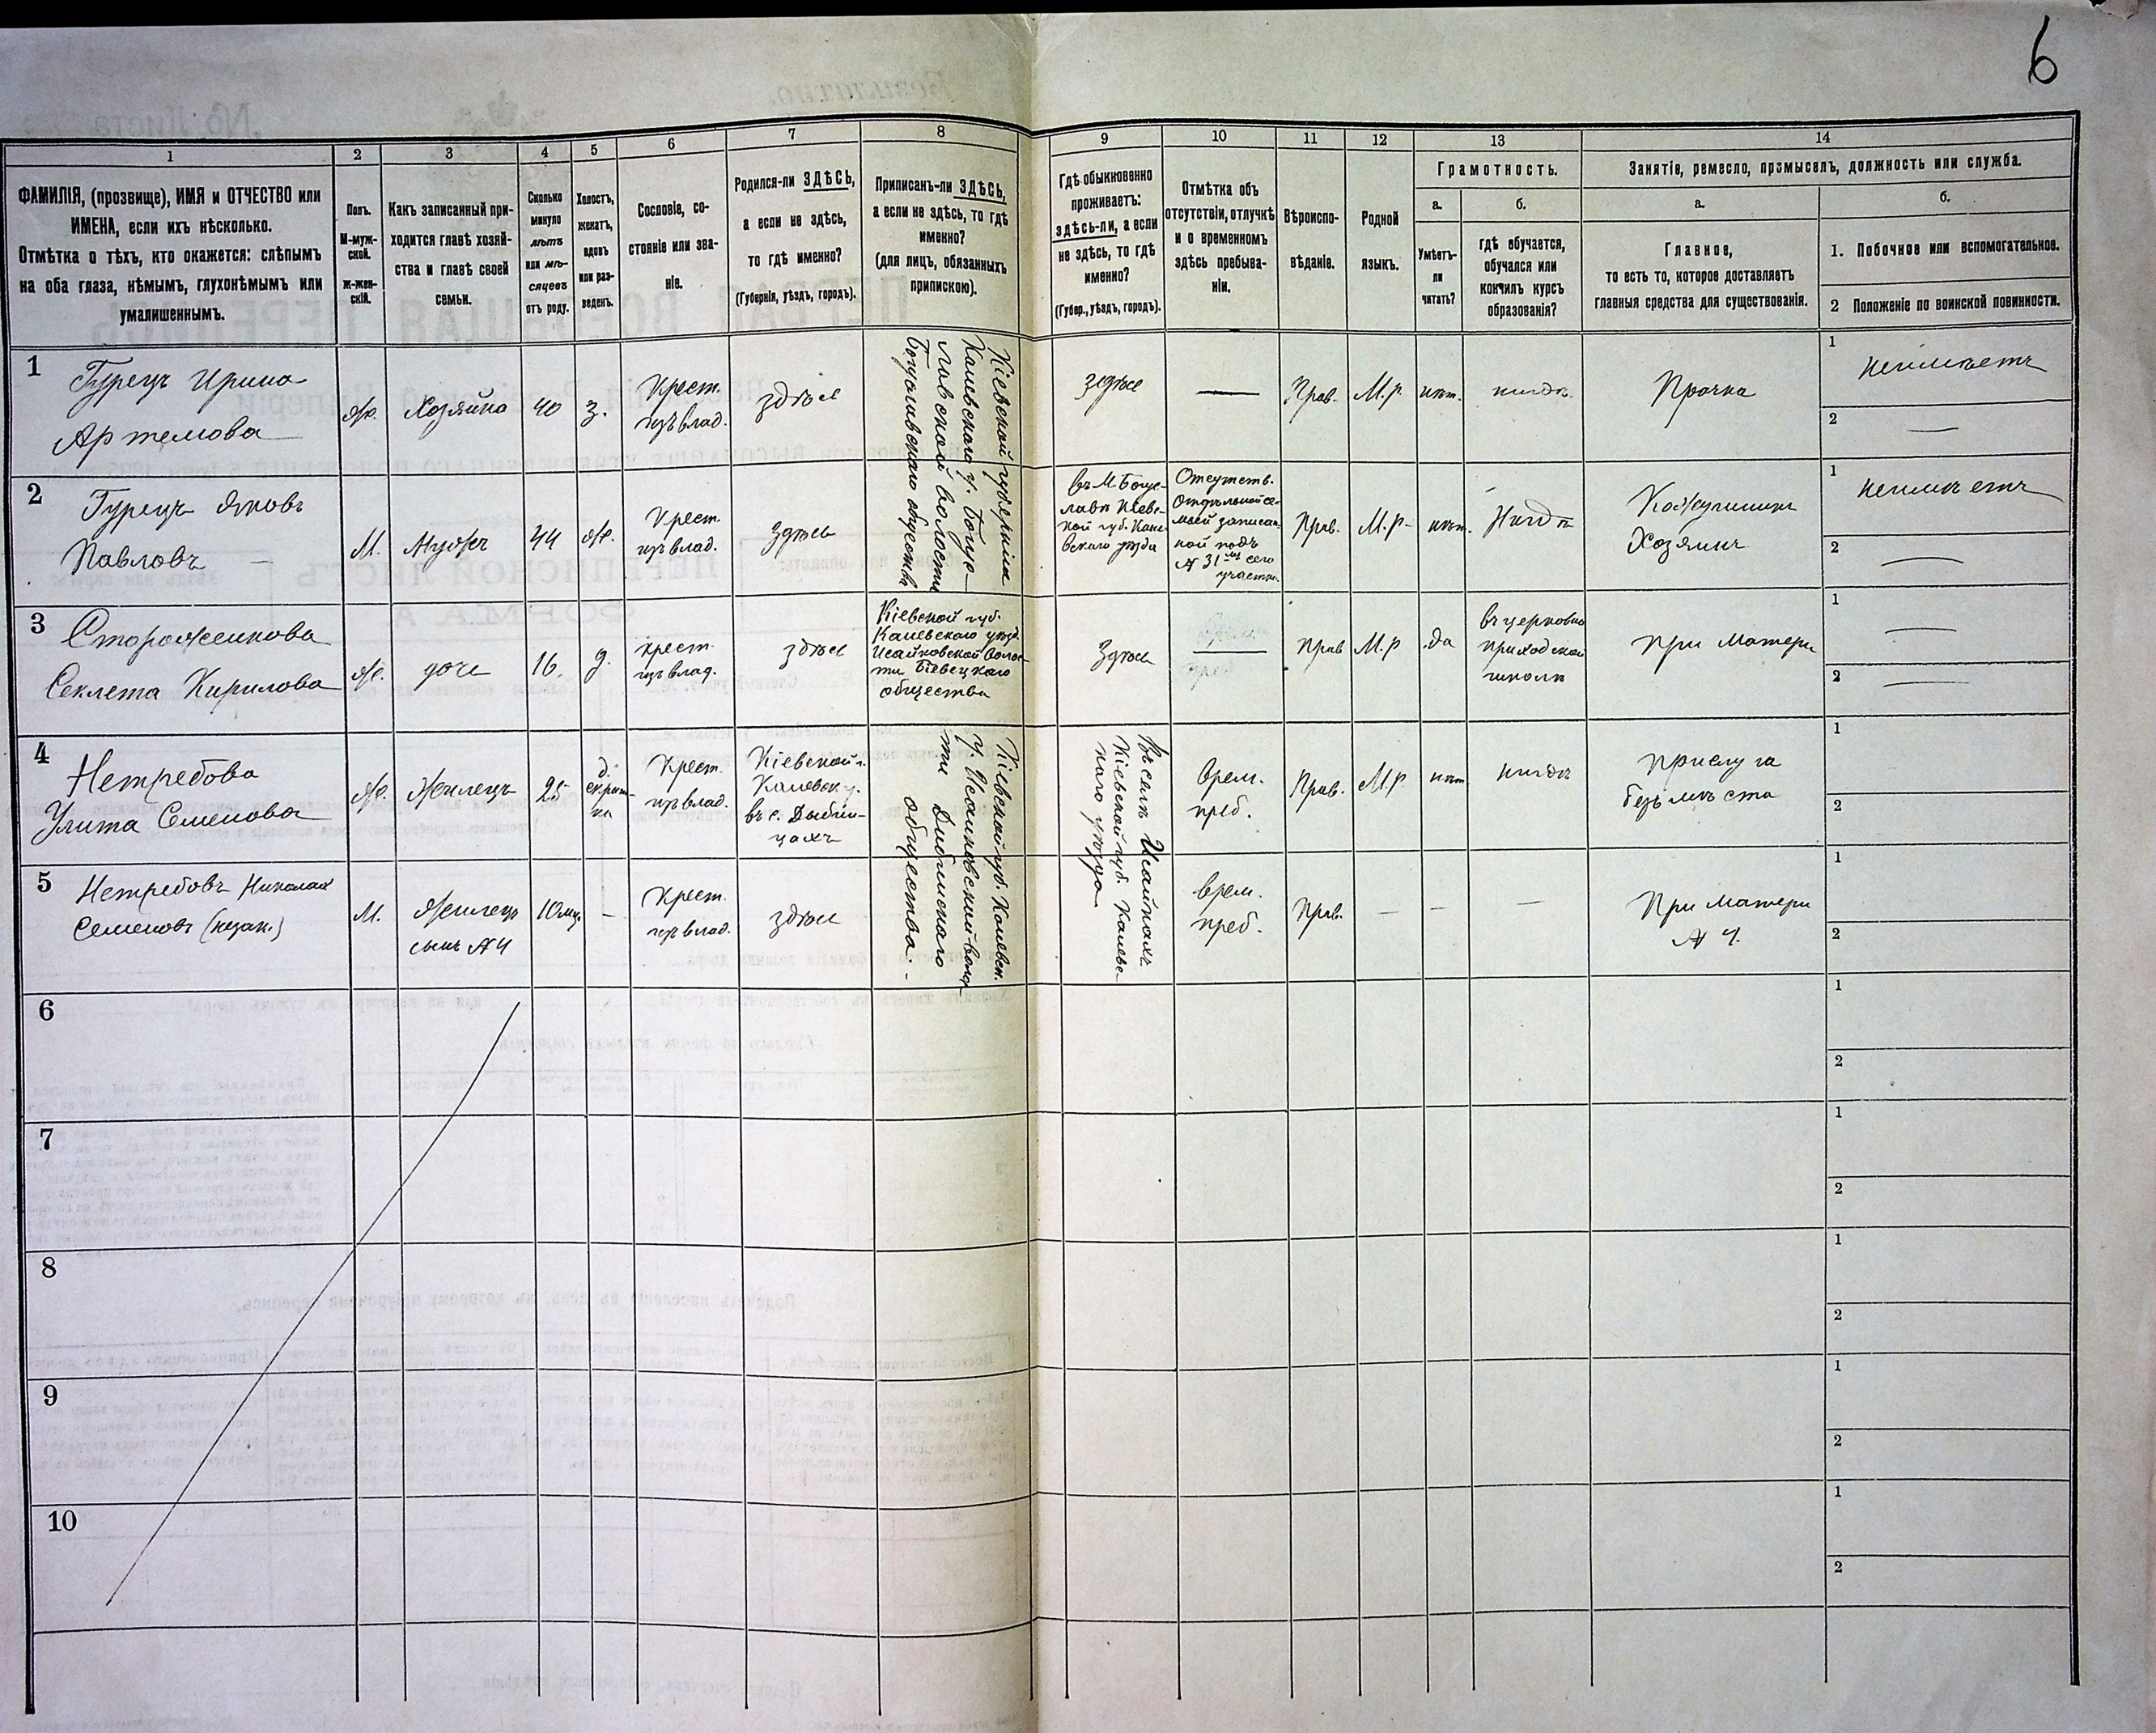 6
1
2
3
4
5
6
7
8
9
10
11
12
13
14
ФАМИЛІЯ, (прозвище), ИМЯ и ОТЧЕСТВО или
ИМЕНА, если ихъ нѣсколько.
Отмѣтка о тѣхъ, кто окажется: слѣпымъ
на оба глаза, нѣмымъ, глухонѣмымъ или
умалишеннымъ.
Полъ.
М-муж-
ской.
ж-жен-
скій.
Какъ записанный при-
ходится главѣ хозяй-
ства и главѣ своей
семьи.
Сколько
минуло
лѣтъ
или мѣ-
сяцевъ
отъ роду.
Холостъ,
женатъ,
вдовъ
или раз-
веденъ.
Сословіе, со-
стояніе или зва-
ніе.
Родился-ли ЗДѢСЬ,
а если не здѣсь,
то гдѣ именно?
(Губернія, уѣздъ, городъ).
Приписанъ-ли ЗДѢСЬ,
а если не здѣсь, то гдѣ
именно?
(для лицъ, обязанныхъ
припискою).
Гдѣ обыкновенно
проживаетъ:
здѣсь-ли, а если
не здѣсь, то гдѣ
именно?
(Губер., уѣздъ, городъ).
Отмѣтка объ
отсутствіи, отлучкѣ
и о временномъ
здѣсь пребыва-
ніи.
Вѣроиспо-
вѣданіе.
Родной
языкъ.
Грамотность.
а.
Умѣетъ-
ли
читать?
б.
гдѣ обучается,
обучался или
кончилъ курсъ
образованія?
Занятіе, ремесло, промыселъ, должность или служба.
а.
Главное,
то есть то, которое доставляетъ
главныя средства для существованія.
б.
1. Побочное или вспомогательное.
2 Положеніе по воинской повинности.
1
Гурецъ Ирина
Артемова
ж.
Хозяйка
40
з.
Крест.
изъ влад.
здѣсь
Кіевской губерніи
Каневскаго у. Богус-
лавской волости
Богуславскаго общества
здѣсь
Прав.
М.р.
нѣт.
нигдѣ
Прачка
1
неимѣетъ
2
2
Гурецъ Яковъ
Павловъ
М.
Мужъ
44
ж.
Крест.
изъ влад.
здѣсь
въ М. Богус-
лавѣ Кіевс-
кой губ. Кане-
вскаго уѣзда
Отсутств.
Отдѣльной се-
мьей записан-
ной подъ
№ 31 сего
участка
Прав.
М.р.
нѣт.
Нигдѣ
Кожушникъ
Хозяинъ
1
неимѣетъ
2
3
Стороженкова
Секлета Кирилова
ж.
дочь
16.
д.
крест.
изъ влад.
здѣсь
Кіевской губ.
Каневскаго уѣзд.
Исайковской Волос-
ти Біевецкаго
общества
Здѣсь
Прав
М.р
да
въ церковно
приходской
школѣ
При Матери
1
2
4
Нетребова
Улита Семенова
ж.
Жилецъ
25
д.
Крест.
изъ влад.
Кіевской г.
Каневск у.
въ с. Дыбин-
цахъ
Кіевской губ. Каневск.
у. Исайковской волос
ти Дибинскаго
общества.
Въ селѣ Исайкахъ
Кіевской губ. Канев-
скаго уѣзда
Врем.
преб.
Прав.
М.р.
нѣт
нигдѣ
прислуга
безъ мѣста
1
2
5
Нетребовъ Николай
Семеновъ (незак.)
М.
Жилецъ
сынъ №4
10 мц.
Крест.
изъ влад.
здѣсь
Врем.
преб.
Прав.
При матери
№ 4.
1
2
6
1
2
7
1
2
8
1
2
9
1
2
10
1
2